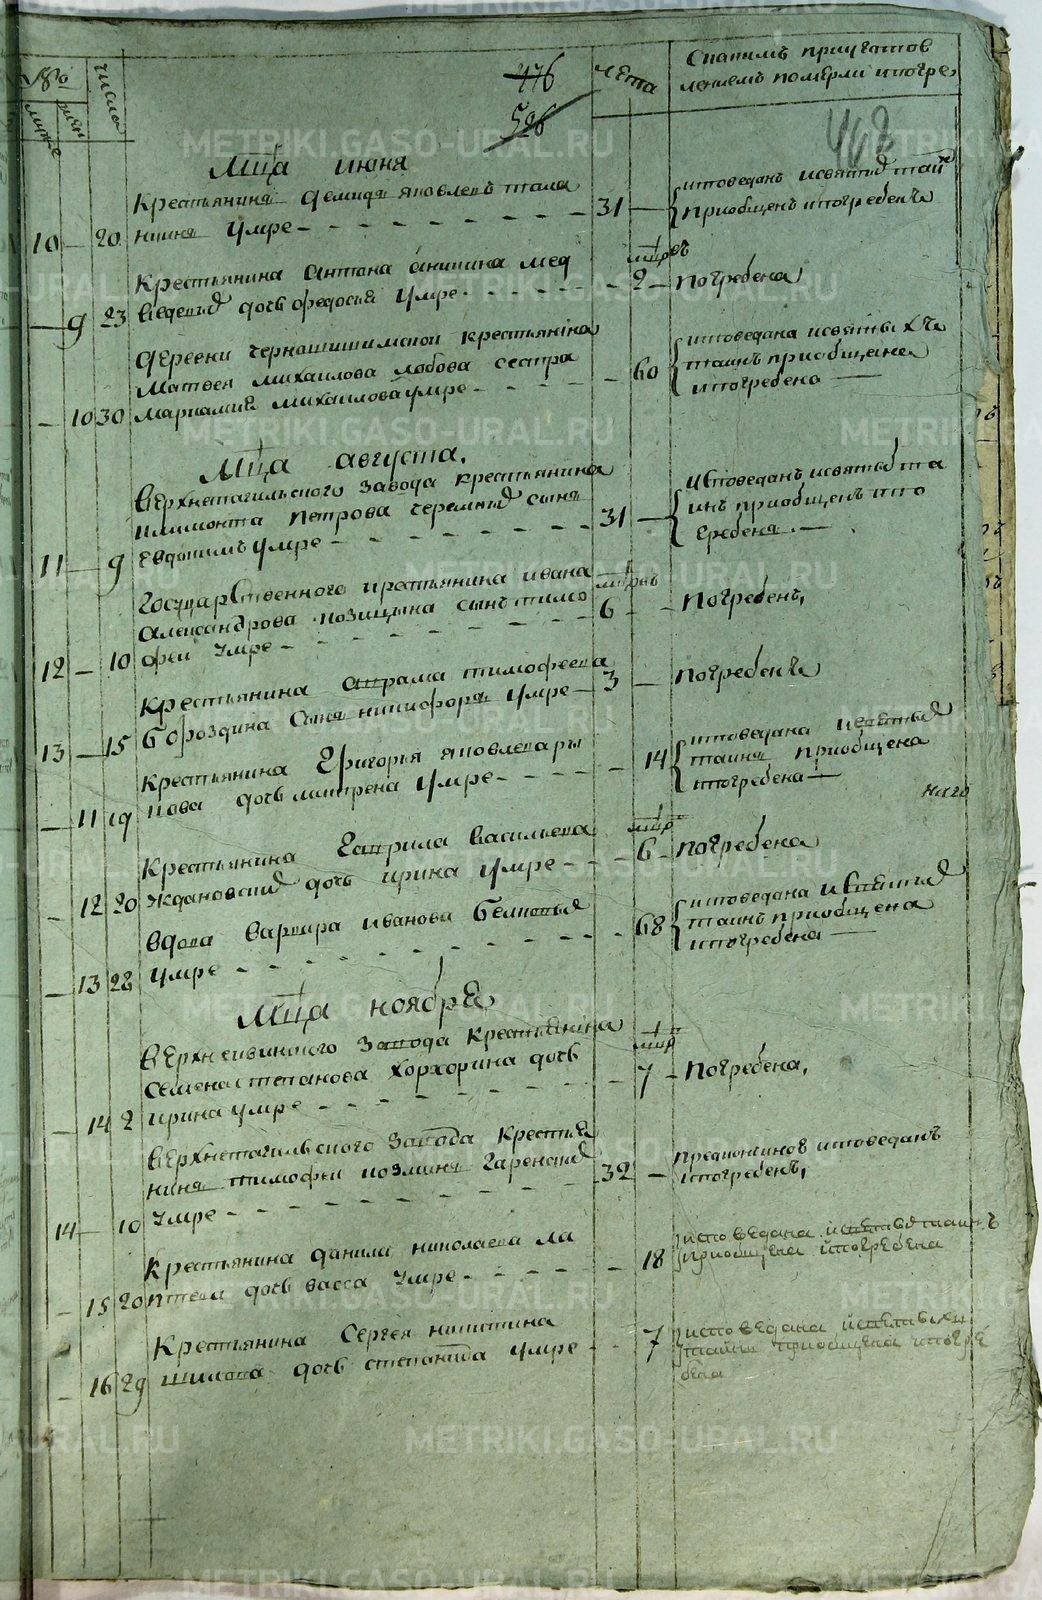 числа
лета
Спакимъ приугатов
лениемъ померли ипогре
476
526
462
Мца июня
Крестьянинъ Демидъ яковлевъ
10 20 умре 31
исповеданъ исвятыхъ таи
приобщенъ ипогребенъ
Крестьянина Антона аникина мед
9 23 ведевыхъ дочь федосья умре 2 погребена
деревни чернашишимской крестьянина
Матвея михаилова лобова сестра
10 30 михаилова умре 60
исповедана исвятыхъ
таинъ приобщена
ипогребена
Мца августа.
верхнетагильского завода крестьянина
петрова черемныхъ сынъ
11 9 Евдокимъ умре 31
исповеданъ исвятыхъ та
инъ приобщенъ ипо
гребенъ
Государственного крестьянина ивана
Александрова позицына сынъ тимо
12 10 фей умре 6 погребенъ,
Крестьянина аврама тимофеева
13 15 бороздина сынъ никифоръ умре 3 погребенъ
Крестьянина Григорья яковлева ры
11 19 кова дочь матрена умре 14
исповедана исвятыхъ
таинъ приобщена
ипогребена
наго
Крестьянина гаврила васильева
12 20 ждановскихъ дочь ирина умре 6 погребена
вдова варвара иванова белковыхъ
13 28 умре 68
исповедана исвятыхъ
таинъ приобщена
ипогребена
Мца ноября
верхнейвинского завода крестьянина
семена степанова хорхорина дочь
14 2 ирина умре 7 погребена,
верхнетагильского завода крестья
нинъ тимофей козминъ гаренскихъ
14 10 умре 32
исповеданъ
ипогребенъ,
Крестьянина данила николаева ла
15 20 птева дочь васса умре 18
исповедана исвятыхъ таинъ
приобщена ипогребена
Крестьянина Сергея никитина
16 29 шилова дочь степанида умре 7
исповедана исвятыхъ
таинъ приобщена ипогре
бена
METRIKI.GASO-URAL.RU